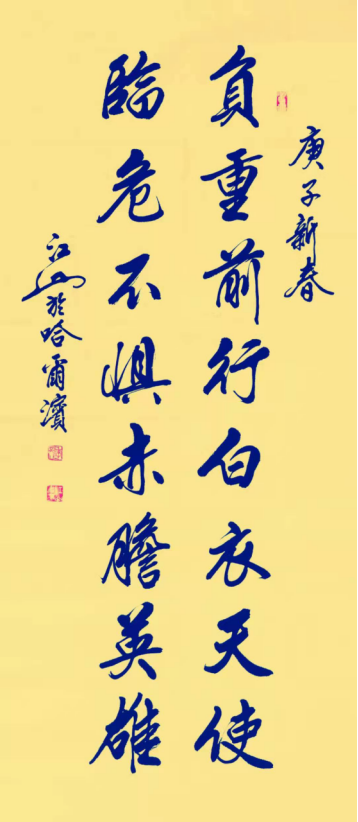 庚子新春
負重前行白衣天使
臨危不惧赤膽英雄
江山於哈爾濱